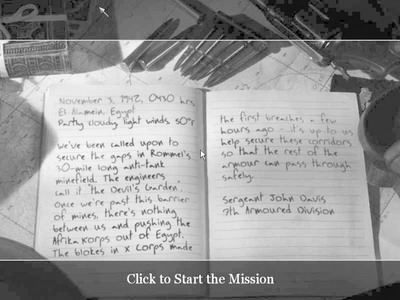 November 3, 1942, 0430 hrs
El Alamein, Egypt
Partly cloudy, light winds 50°F
We've been called upon to
secure the gaps in Rommel's
30-mile long anti-tank
minefield. The engineers
call it 'the Devil's Garden'.
Once we're past this barrier
of mines, there's nothing
between us and pushing the
Afrika Korps out of Egypt.
The blokes in X Corps made
the first breaches a few
hours ago - it's up to us
help secure these corridors
so that the rest of the
armour can pass through
safely.
Sergeant John Davis
7th Armoured Division
Click to Start the Mission